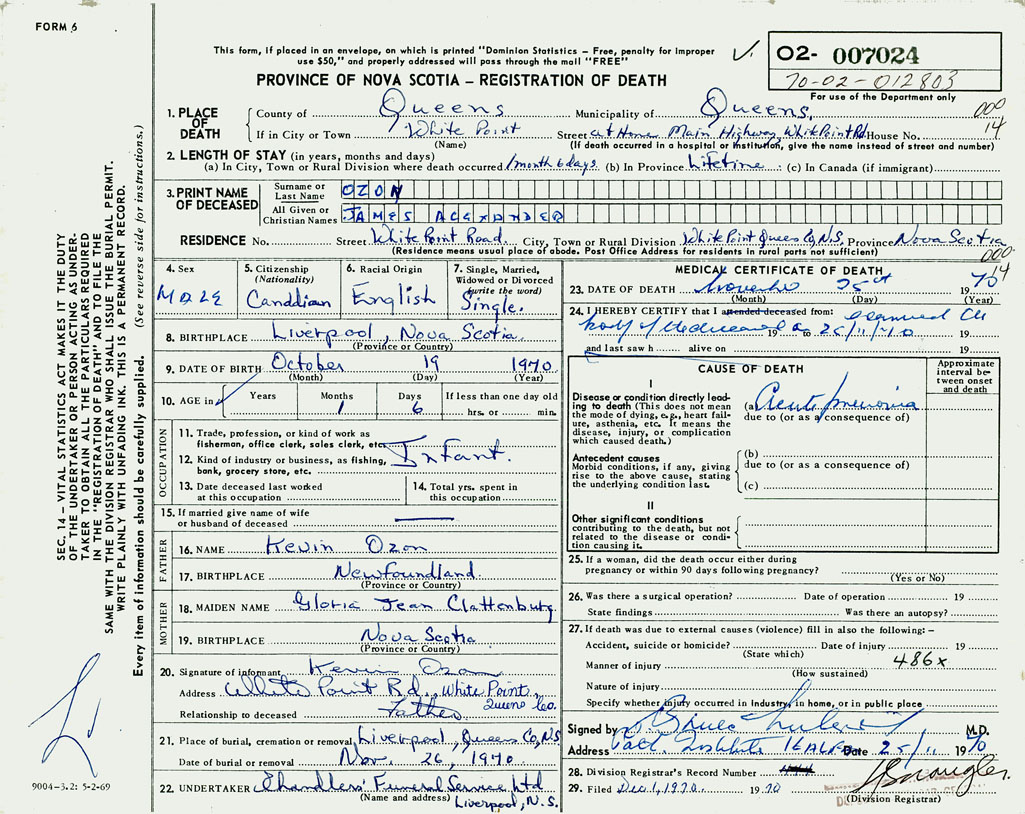 FORM 6
This form, if placed in an envelope, on which is printed "Dominion Statistics – Free, penalty for improper
use $50," and properly addressed will pass through the mail "FREE"
PROVINCE OF NOVA SCOTIA – REGISTRATION OF DEATH
02- 007024
70-02-012803
For use of the Department only
000
14
1. PLACE OF DEATH
County of Queens Municipality of Queens
If in City or Town White Point Street at Home Main Highway, White Point Rd House No.
(Name) (If death occurred in a hospital or institution, give the name instead of street and number)
2. LENGTH OF STAY (in years, months and days)
(a) In City, Town or Rural Division where death occurred 1 month 6 days (b) In Province Lifetime (c) In Canada (if immigrant)
3. PRINT NAME OF DECEASED
Surname or Last Name OZON
All Given or Christian Names JAMES ALEXANDER
RESIDENCE No. Street White Point Road City, Town or Rural Division White Point Queens Co, N.S. Province Nova Scotia
(Residence means usual place of abode. Post Office Address for residents in rural parts not sufficient)
000
14
4. Sex
MALE
5. Citizenship (Nationality)
Canddian
6. Racial Origin
English
7. Single, Married, Widowed or Divorced (write the word)
Single.
8. BIRTHPLACE Liverpool, Nova Scotia
(Province or Country)
9. DATE OF BIRTH October 19 1970
(Month) (Day) (Year)
10. AGE in Years Months Days If less than one day old
1 6 hrs. or min.
OCCUPATION
11. Trade, profession, or kind of work as fisherman, office clerk, sales clerk, etc.
Infant.
12. Kind of industry or business, as fishing, bank, grocery store, etc.
13. Date deceased last worked at this occupation
14. Total yrs. spent in this occupation
15. If married give name of wife or husband of deceased
FATHER
16. NAME Kevin Ozon
17. BIRTHPLACE Newfoundland
(Province or Country)
MOTHER
18. MAIDEN NAME Gloria Jean Clattenburg
19. BIRTHPLACE Nova Scotia
(Province or Country)
20. Signature of informant Kevin Ozon
Address White Point Rd., White Point Queens Co.
Relationship to deceased Father
21. Place of burial, cremation or removal Liverpool, Queens Co, N.S.
Date of burial or removal Nov. 26, 1970
22. UNDERTAKER Chandlers' Funeral Service Ltd
(Name and address) Liverpool, N.S.
MEDICAL CERTIFICATE OF DEATH
23. DATE OF DEATH November 25th 1970
(Month) (Day) (Year)
24. I HEREBY CERTIFY that I attended deceased from: examined the
body of the deceased 25/11/70 19 19
and last saw h alive on 19
CAUSE OF DEATH
Approximate interval between onset and death
I
Disease or condition directly leading to death (This does not mean the mode of dying, e.g., heart failure, asthenia, etc. It means the disease, injury, or complication which caused death.)
(a) Acute pneumonia
due to (or as a consequence of)
Antecedent causes
Morbid conditions, if any, giving rise to the above cause, stating the underlying condition last.
(b)
due to (or as a consequence of)
(c)
II
Other significant conditions
contributing to the death, but not related to the disease or condition causing it.
25. If a woman, did the death occur either during
pregnancy or within 90 days following pregnancy?
(Yes or No)
26. Was there a surgical operation? Date of operation 19
State findings Was there an autopsy?
27. If death was due to external causes (violence) fill in also the following: –
Accident, suicide or homicide? Date of injury 19
(State which)
Manner of injury 486x
(How sustained)
Nature of injury
Specify whether injury occurred in industry, in home, or in public place
Signed by M.D.
Address Path. Institute Date 25/11 1970
28. Division Registrar's Record Number
29. Filed Dec 1, 1970. 1970
(Division Registrar)
SEC. 14 – VITAL STATISTICS ACT MAKES IT THE DUTY
OF THE UNDERTAKER OR PERSON ACTING AS UNDER-
TAKER TO OBTAIN ALL THE PARTICULARS REQUIRED
IN THE "REGISTRATION OF DEATH" AND TO FILE THE
SAME WITH THE DIVISION REGISTRAR WHO SHALL ISSUE THE BURIAL PERMIT.
WRITE PLAINLY WITH UNFADING INK. THIS IS A PERMANENT RECORD.
Every item of information should be carefully supplied. (See reverse side for instructions.)
9004-3.2: 5-2-69